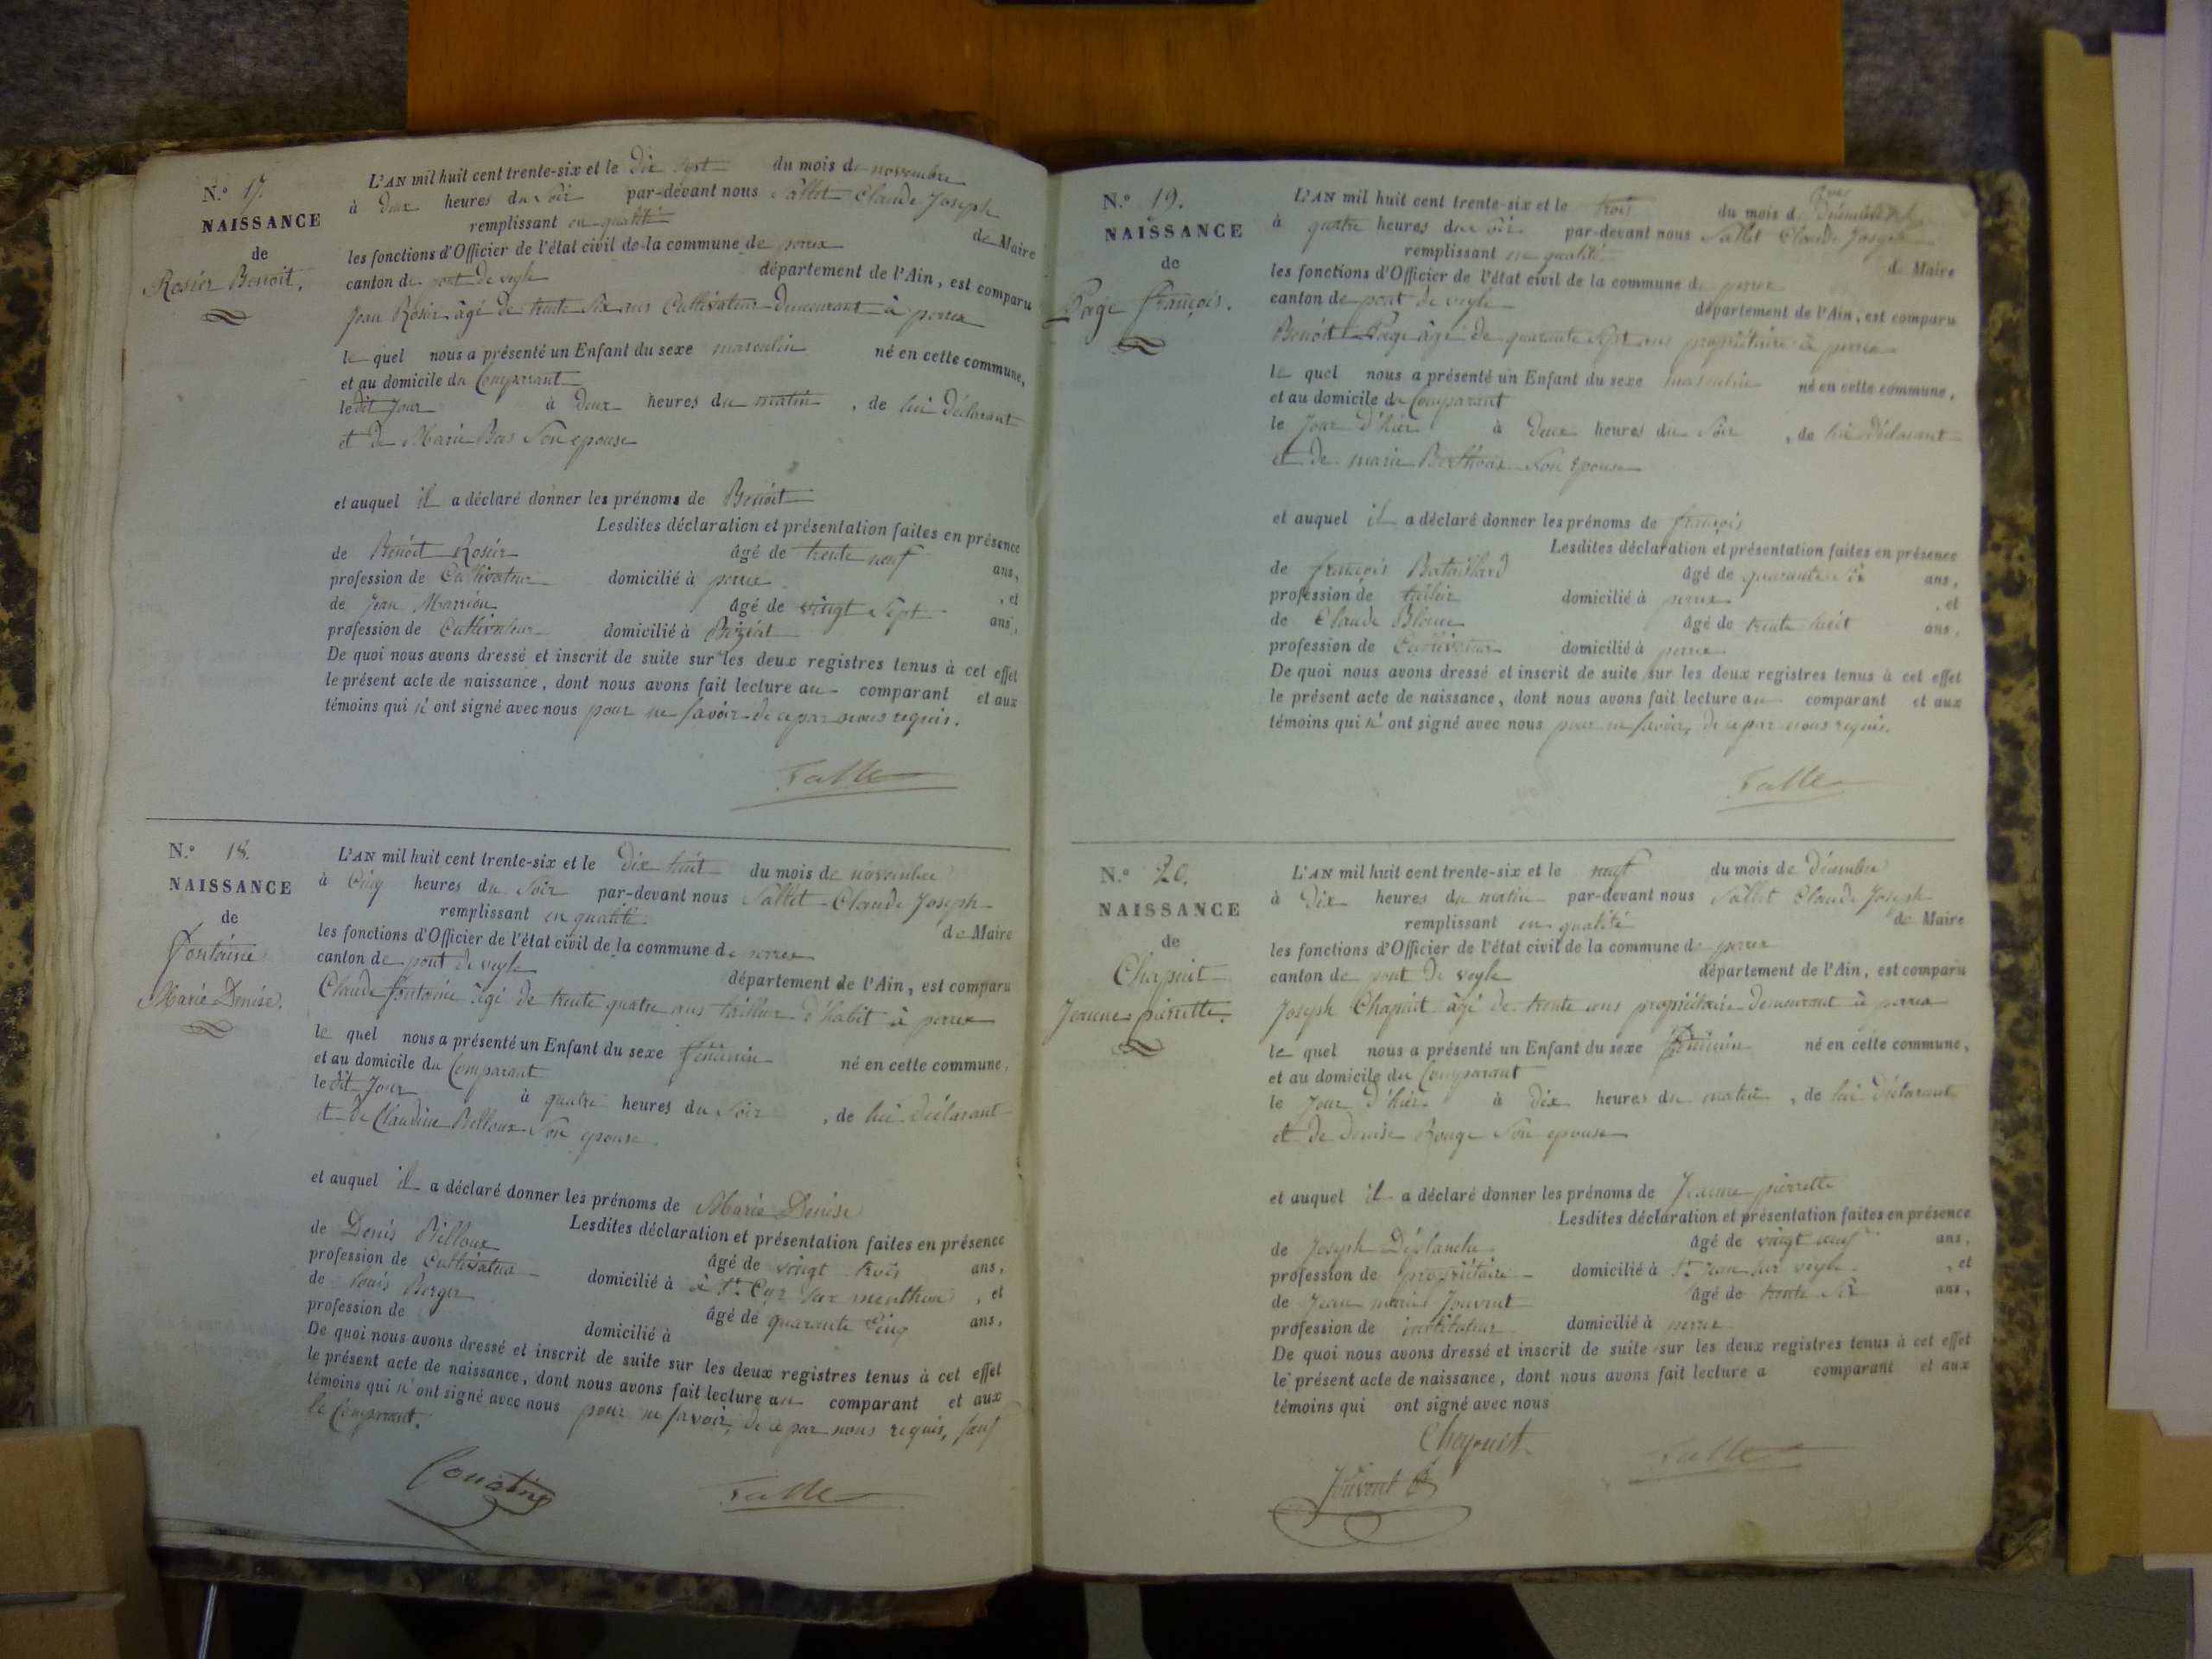 N.° 17.
NAISSANCE
de
Rosier Benoit.
L'AN mil huit cent trente-six et le dix sept du mois de novembre
à deux heures du soir par-devant nous Sallet Claude Joseph
remplissant en qualité de Maire
les fonctions d'Officier de l'état civil de la commune de perrex
canton de pont de veyle département de l'Ain, est comparu
Jean Rosier âgé de trente six ans Cultivateur demeurant à perrex
le quel nous a présenté un Enfant du sexe masculin né en cette commune,
et au domicile du Comparant
le dit Jour à deux heures du matin, de lui déclarant
et de Marie Bas Son epouse
et auquel il a déclaré donner les prénoms de Benoit
Lesdites déclaration et présentation faites en présence
de Benoit Rosier âgé de trente neuf ans,
profession de Cultivateur domicilié à perrex, et
de Jean Marrion âgé de vingt Sept ans,
profession de Cultivateur domicilié à Biziat
De quoi nous avons dressé et inscrit de suite sur les deux registres tenus à cet effet
le présent acte de naissance, dont nous avons fait lecture au comparant et aux
témoins qui n'ont signé avec nous pour ne savoir de ce par nous requis.
N.° 18.
NAISSANCE
de
Fontaine
Marie Denise.
L'AN mil huit cent trente-six et le dix huit du mois de novembre
à Cinq heures du Soir par-devant nous Sallet Claude Joseph
remplissant en qualité de Maire
les fonctions d'Officier de l'état civil de la commune de perrex
canton de pont de veyle département de l'Ain, est comparu
Claude fontaine âgé de trente quatre ans tailleur d'habit à perrex
le quel nous a présenté un Enfant du sexe féminin né en cette commune,
et au domicile du Comparant
le dit Jour à quatre heures du Soir, de lui déclarant
et de Claudine Belloux Son epouse
et auquel il a déclaré donner les prénoms de Marie Denise
Lesdites déclaration et présentation faites en présence
de Denis Belloux âgé de vingt trois ans,
profession de Cultivateur domicilié à à St. Cyr sur menthon, et
de Louis Berger âgé de quarante Cinq ans,
profession de domicilié à
De quoi nous avons dressé et inscrit de suite sur les deux registres tenus à cet effet
le présent acte de naissance, dont nous avons fait lecture au comparant et aux
témoins qui n'ont signé avec nous pour ne savoir, de ce par nous requis, sauf
le Comparant.
N.° 19.
NAISSANCE
de
Page françois.
L'AN mil huit cent trente-six et le trois du mois d Décembre
à quatre heures du soir par-devant nous Sallet Claude Joseph
remplissant en qualité de Maire
les fonctions d'Officier de l'état civil de la commune de perrex
canton de pont de veyle département de l'Ain, est comparu
Benoit Page âgé de quarante Sept ans propriétaire à perrex
le quel nous a présenté un Enfant du sexe masculin né en cette commune,
et au domicile du Comparant
le Jour d'hier à Deux heures du Soir, de lui déclarant
et de marie Berthoux Son epouse
et auquel il a déclaré donner les prénoms de françois
Lesdites déclaration et présentation faites en présence
de françois Bataillard âgé de quarante six ans,
profession de domicilié à perrex, et
de Claude Blanc âgé de trente huit ans,
profession de Cultivateur domicilié à perrex
De quoi nous avons dressé et inscrit de suite sur les deux registres tenus à cet effet
le présent acte de naissance, dont nous avons fait lecture au comparant et aux
témoins qui n'ont signé avec nous pour ne savoir, de ce par nous requis.
N.° 20.
NAISSANCE
de
Chapuit
Jeanne pierrette.
L'AN mil huit cent trente-six et le neuf du mois de Décembre
à Dix heures du matin par-devant nous Sallet Claude Joseph
remplissant en qualité de Maire
les fonctions d'Officier de l'état civil de la commune de perrex
canton de pont de veyle département de l'Ain, est comparu
Joseph Chapuit âgé de trente ans propriétaire demeurant à perrex
le quel nous a présenté un Enfant du sexe féminin né en cette commune,
et au domicile du Comparant
le Jour d'hier à dix heures du matin, de lui déclarant
et de denise Rouge Son epouse
et auquel il a déclaré donner les prénoms de Jeanne pierrette
Lesdites déclaration et présentation faites en présence
de Joseph Déplanche âgé de vingt neuf ans,
profession de propriétaire domicilié à St. Jean sur veyle, et
de Jean marie Jouvent âgé de trente six ans,
profession de instituteur domicilié à perrex
De quoi nous avons dressé et inscrit de suite sur les deux registres tenus à cet effet
le présent acte de naissance, dont nous avons fait lecture a comparant et aux
témoins qui ont signé avec nous
Jouvent